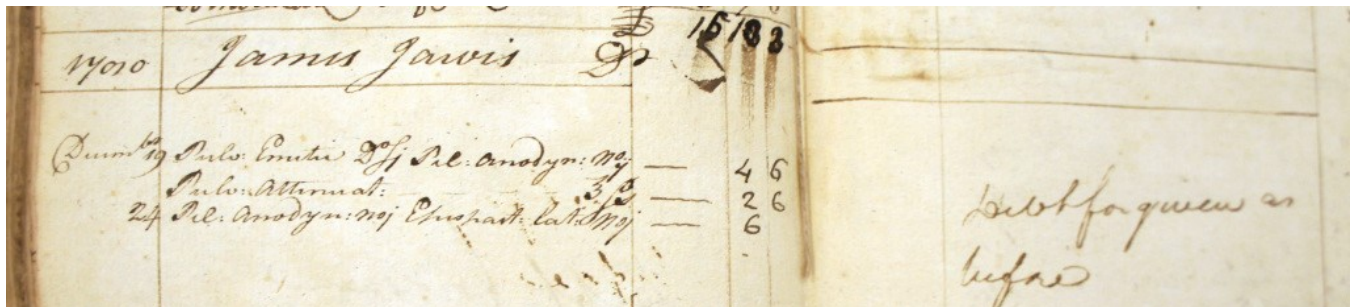 15 18 8
1790 James Jarvis Dr
Decemb:er 19 Pulv: Emetic Pil: Anodyn: No j — 4 6
Pulv: Attenuat: — 2 6
24 Pil: Anodyn: No j Emplast: No j — 6
Debt forgiven as
before